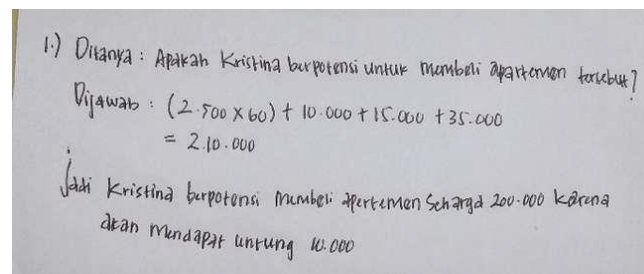 1.) Ditanya : Apakah Kristina berpotensi untuk membeli apartemen tersebut?
Dijawab : (2.500 x 60) + 10.000 + 15.000 + 35.000
= 2.10.000
Jadi Kristina berpotensi membeli apertemen seharga 200.000 karena
akan mendapat untung 10.000